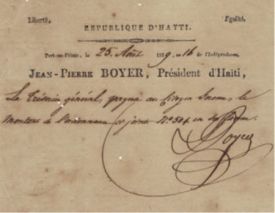 Liberté, Égalité.
RÉPUBLIQUE D'HAÏTI.
Port-au-Prince, le 25 Août 1819, an 16 de l'Indépendance.
JEAN-PIERRE BOYER, Président d'Haïti,
Le Trésorier général, payera au Citoyen le
montant de l'ordonnance ce jour N° en
Boyer